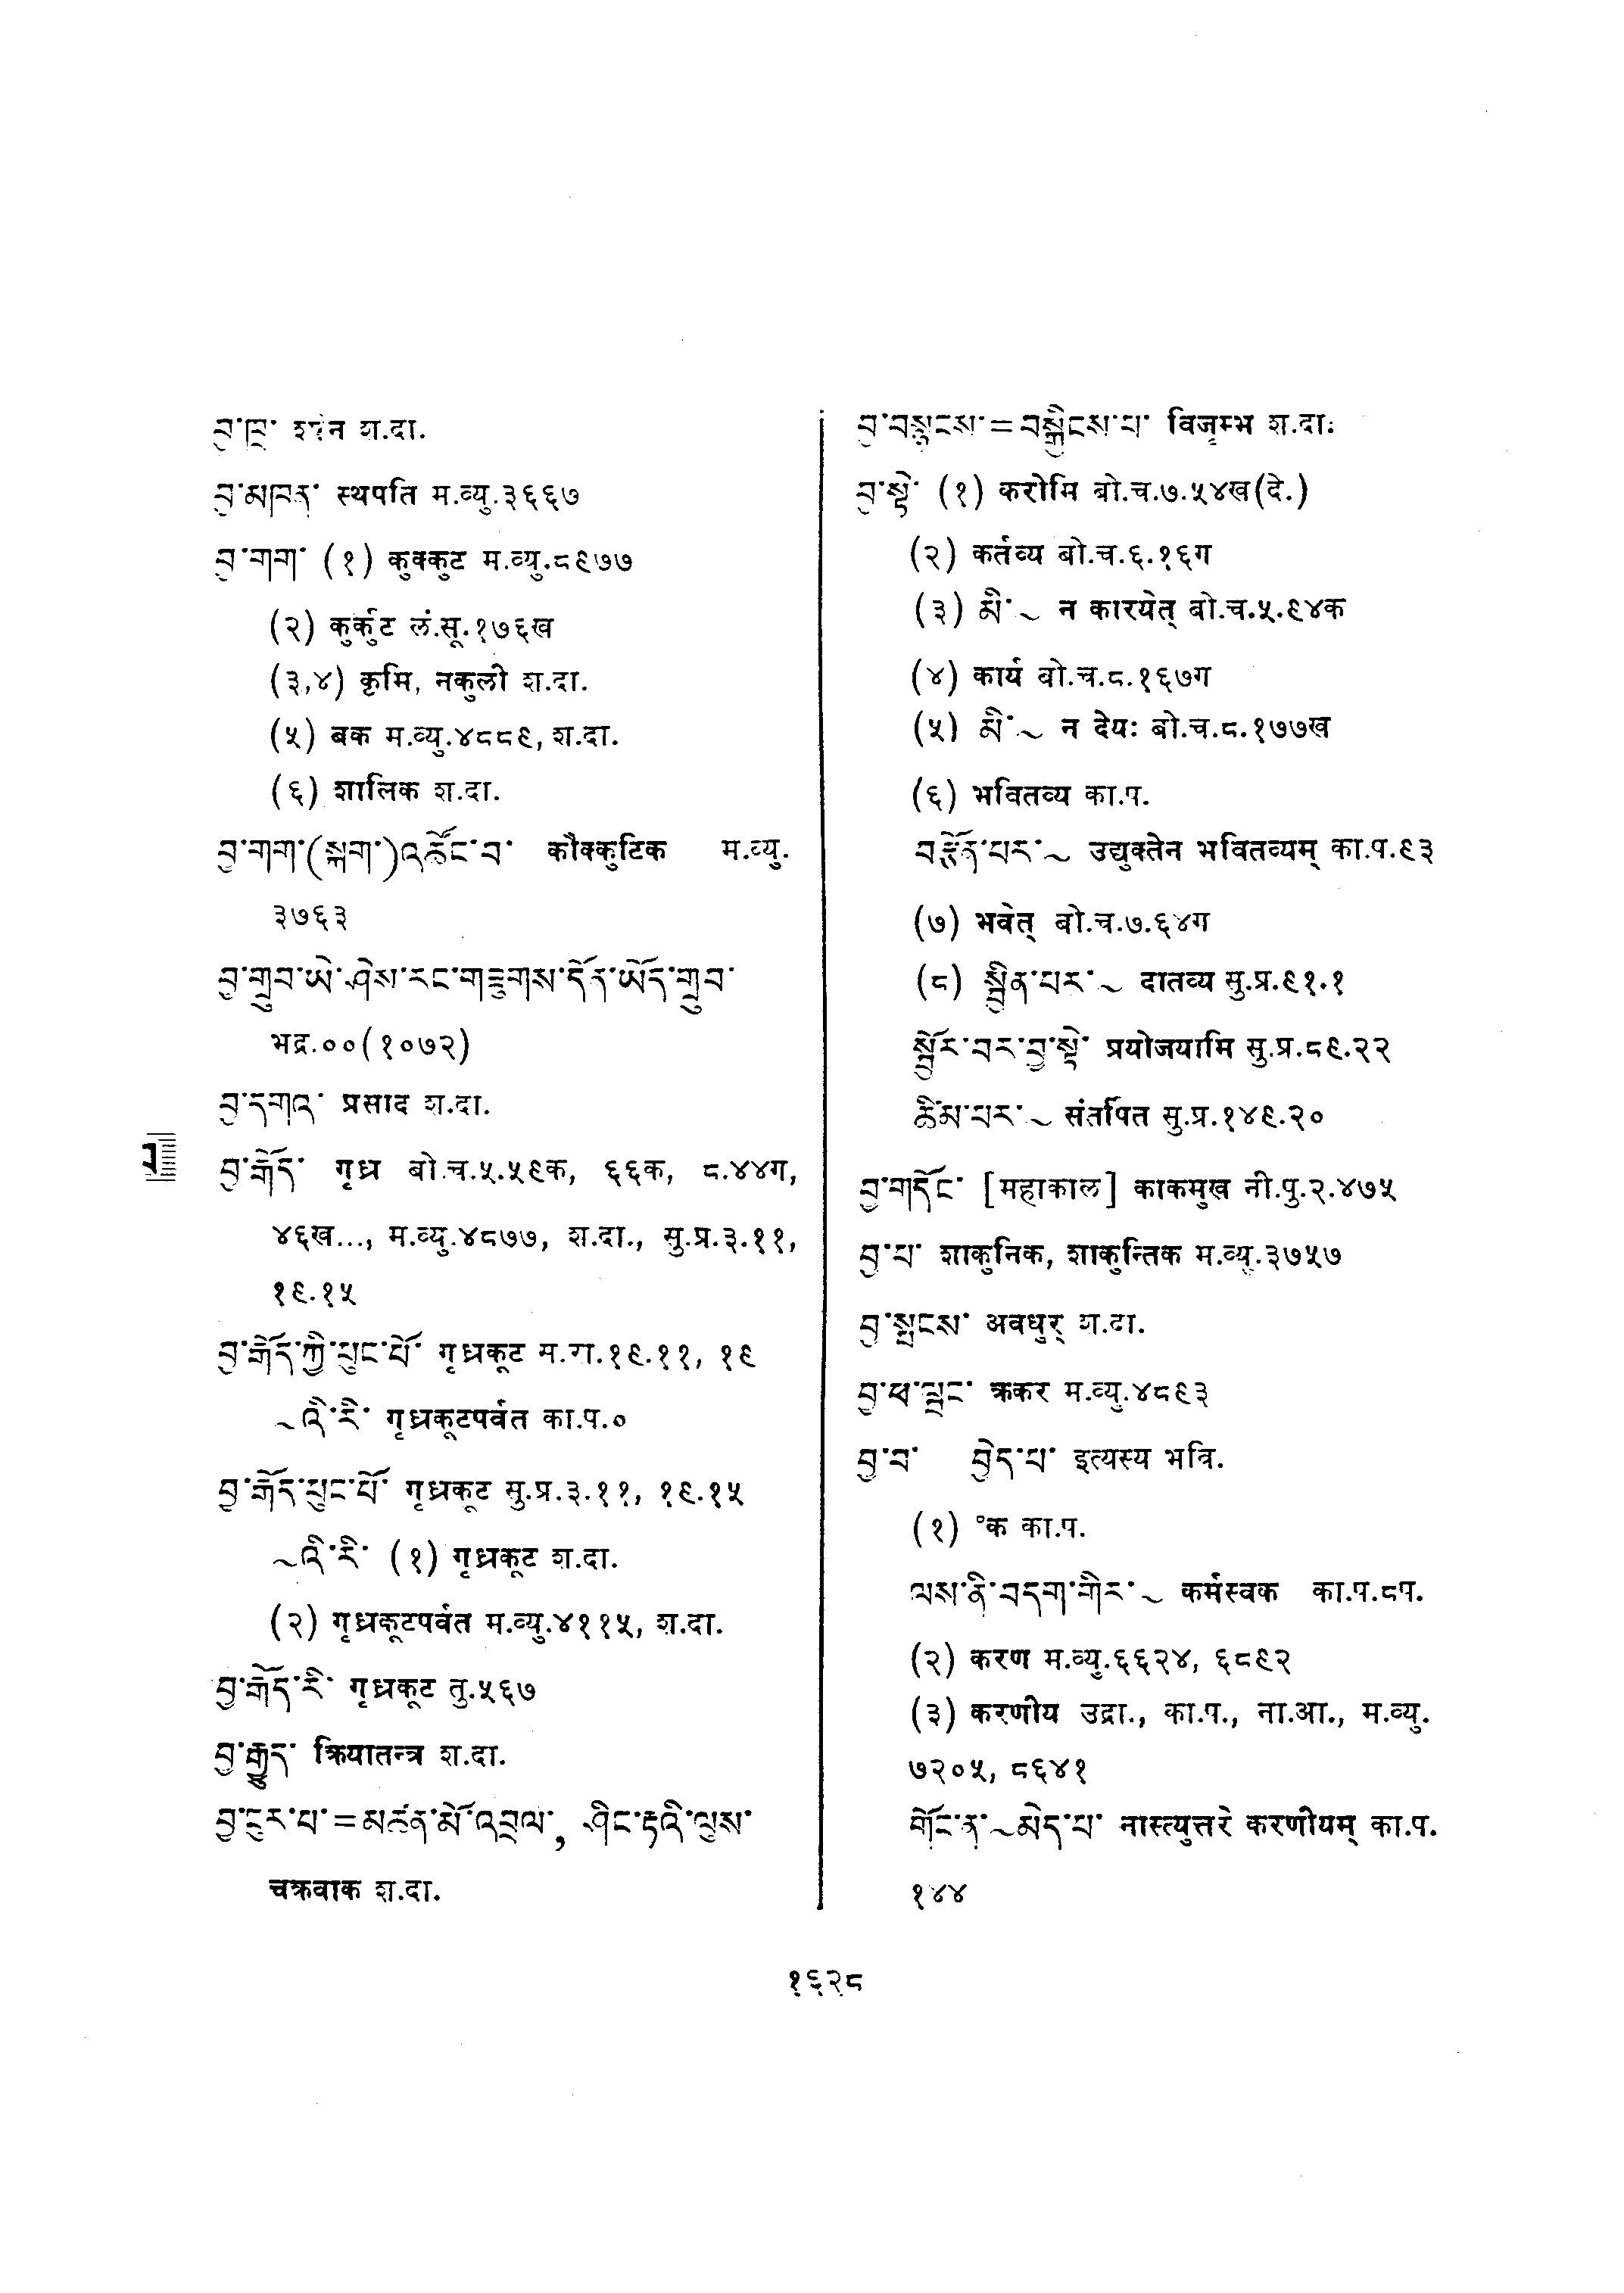 བྱ་ཁྲ་ श्येन श.दा.
བྱ་མཁན་ स्थपति म.व्यु.३६६७
བྱ་གག་ (१) कुक्कुट म.व्यु.८९७७
(२) कुर्कुट लं.सू.१७६ख
(३,४) कृमि, नकुली श.दा.
(५) बक म.व्यु.४८८९, श.दा.
(६) शालिक श.दा.
བྱ་གག་(སྐག་)འཚོང་བ་ कौक्कुटिक म.व्यु.
३७६३
བྱ་གྲུབ་ཡེ་ཤེས་རང་གཟུགས་དོན་ཡོད་གྲུབ་
भद्र.००(१०७२)
བྱ་དགའ་ प्रसाद श.दा.
བྱ་རྒོད་ गृध्र बो.च.५.५९क, ६६क, ८.४४ग,
४६ख..., म.व्यु.४८७७, श.दा., सु.प्र.३.११,
१९.१५
བྱ་རྒོད་ཀྱི་ཕུང་པོ་ गृध्रकूट म.रा.१९.११, १९
~འི་རི་ गृध्रकूटपर्वत का.प.०
བྱ་རྒོད་ཕུང་པོ་ गृध्रकूट सु.प्र.३.११, १९.१५
~འི་རི་ (१) गृध्रकूट श.दा.
(२) गृध्रकूटपर्वत म.व्यु.४११५, श.दा.
བྱ་རྒོད་རི་ गृध्रकूट तु.५६७
བྱ་རྒྱུད་ क्रियातन्त्र श.दा.
བྱ་ངུར་པ་=མཚན་མོ་འབྲལ་, ཤིང་རྟའི་ལུས་
चक्रवाक श.दा.
བྱ་བསྙངས་=བསྒྱིངས་པ་ विजृम्भ श.दा.
བྱ་སྟེ་ (१) करोमि बो.च.७.५४ख(दे.)
(२) कर्तव्य बो.च.६.१६ग
(३) མི་~ न कारयेत् बो.च.५.९४क
(४) कार्य बो.च.८.१६७ग
(५) མི་~ न देयः बो.च.८.१७७ख
(६) भवितव्य का.प.
བརྩོན་པར་~ उद्युक्तेन भवितव्यम् का.प.९३
(७) भवेत् बो.च.७.६४ग
(८) སྦྱིན་པར་~ दातव्य सु.प्र.९१.१
སྦྱོར་བར་བྱ་སྟེ་ प्रयोजयामि सु.प्र.८९.२२
ཚིམ་པར་~ संतर्पित सु.प्र.१४९.२०
བྱ་གདོང་ [महाकाल] काकमुख नी.पु.२.४७५
བྱ་པ་ शाकुनिक, शाकुन्तिक म.व्यु.३७५७
བྱ་སྤྲངས་ अवधुर् श.दा.
བྱ་ཕ་ལྦང་ क्रकर म.व्यु.४८९३
བྱ་བ་ བྱེད་པ་ इत्यस्य भवि.
(१) °क का.प.
ལས་ནི་བདག་གིར་~ कर्मस्वक का.प.८प.
(२) करण म.व्यु.६६२४, ६८९२
(३) करणीय उद्रा., का.प., ना.आ., म.व्यु.
७२०५, ८६४१
གོང་ན་~མེད་པ་ नास्त्युत्तरे करणीयम् का.प.
१४४
१६२८